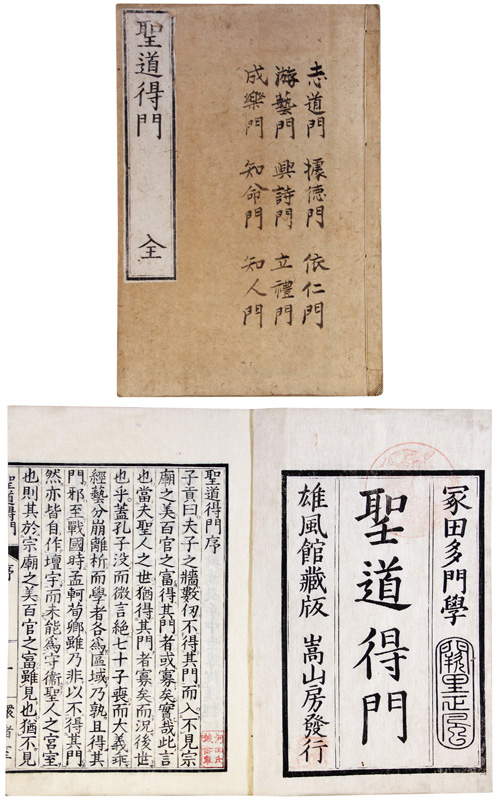 志道門 據德門 依仁門
游藝門 興詩門 立禮門
成樂門 知命門 知人門
聖道得門 全
冢田多門學
聖道得門
雄風館藏版 嵩山房發行
聖道得門序
子貢曰夫子之牆數仞不得其門而入不見宗
廟之美百官之富得其門者或寡矣實哉此言
也當夫聖人之世猶得其門者寡矣而況後世
也乎蓋孔子没而微言絕七十子喪而大義乖
經藝分崩離析而學者各爲區域乃孰且得其
門邪至戰國時孟軻荀卿雖乃非以不得其門
然亦皆自作壇宇而未能爲守衞聖人之宮室
也則其於宗廟之美百官之富雖見也猶不見
聖道得門 序